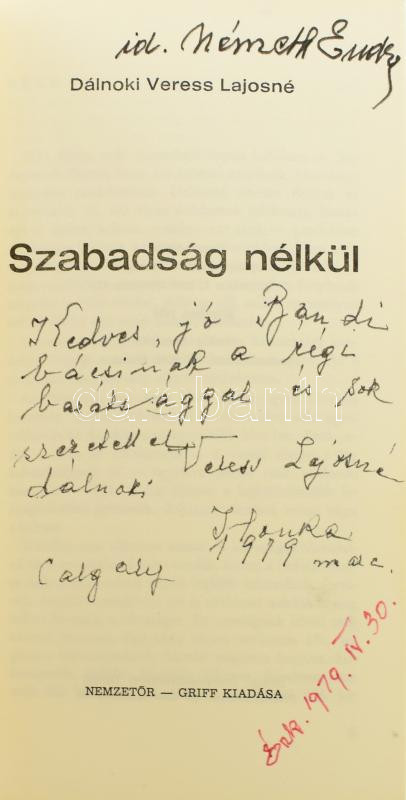 id. Németh Endre
Dálnoki Veress Lajosné
Szabadság nélkül
Kedves, jó Bándi
bácsinak a régi
barátsággal és sok
szeretettel Veress Lajosné
dálnoki
Ilonka
Calgary 1979 marc.
NEMZETŐR — GRIFF KIADÁSA
Érk. 1979. IV. 30.
darabanth